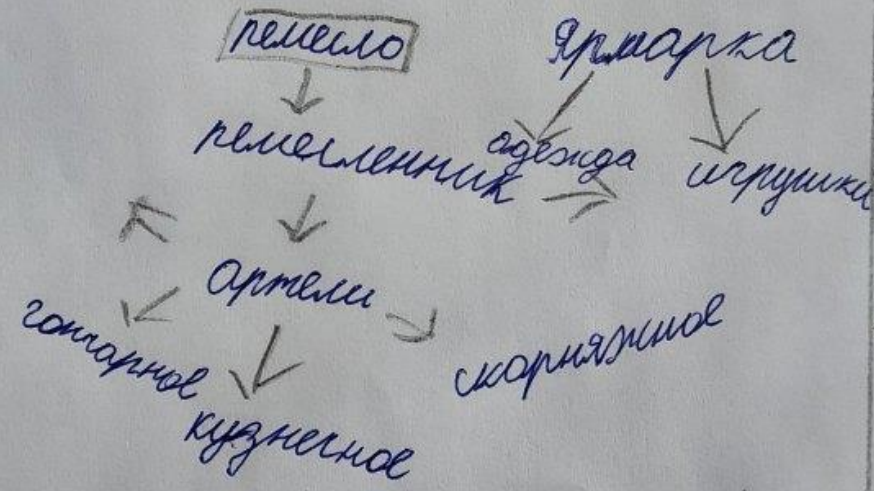 ремесло
Ярмарка
ремесленник
одежда
игрушки
Артели
гончарное
скорняжное
кузнечное